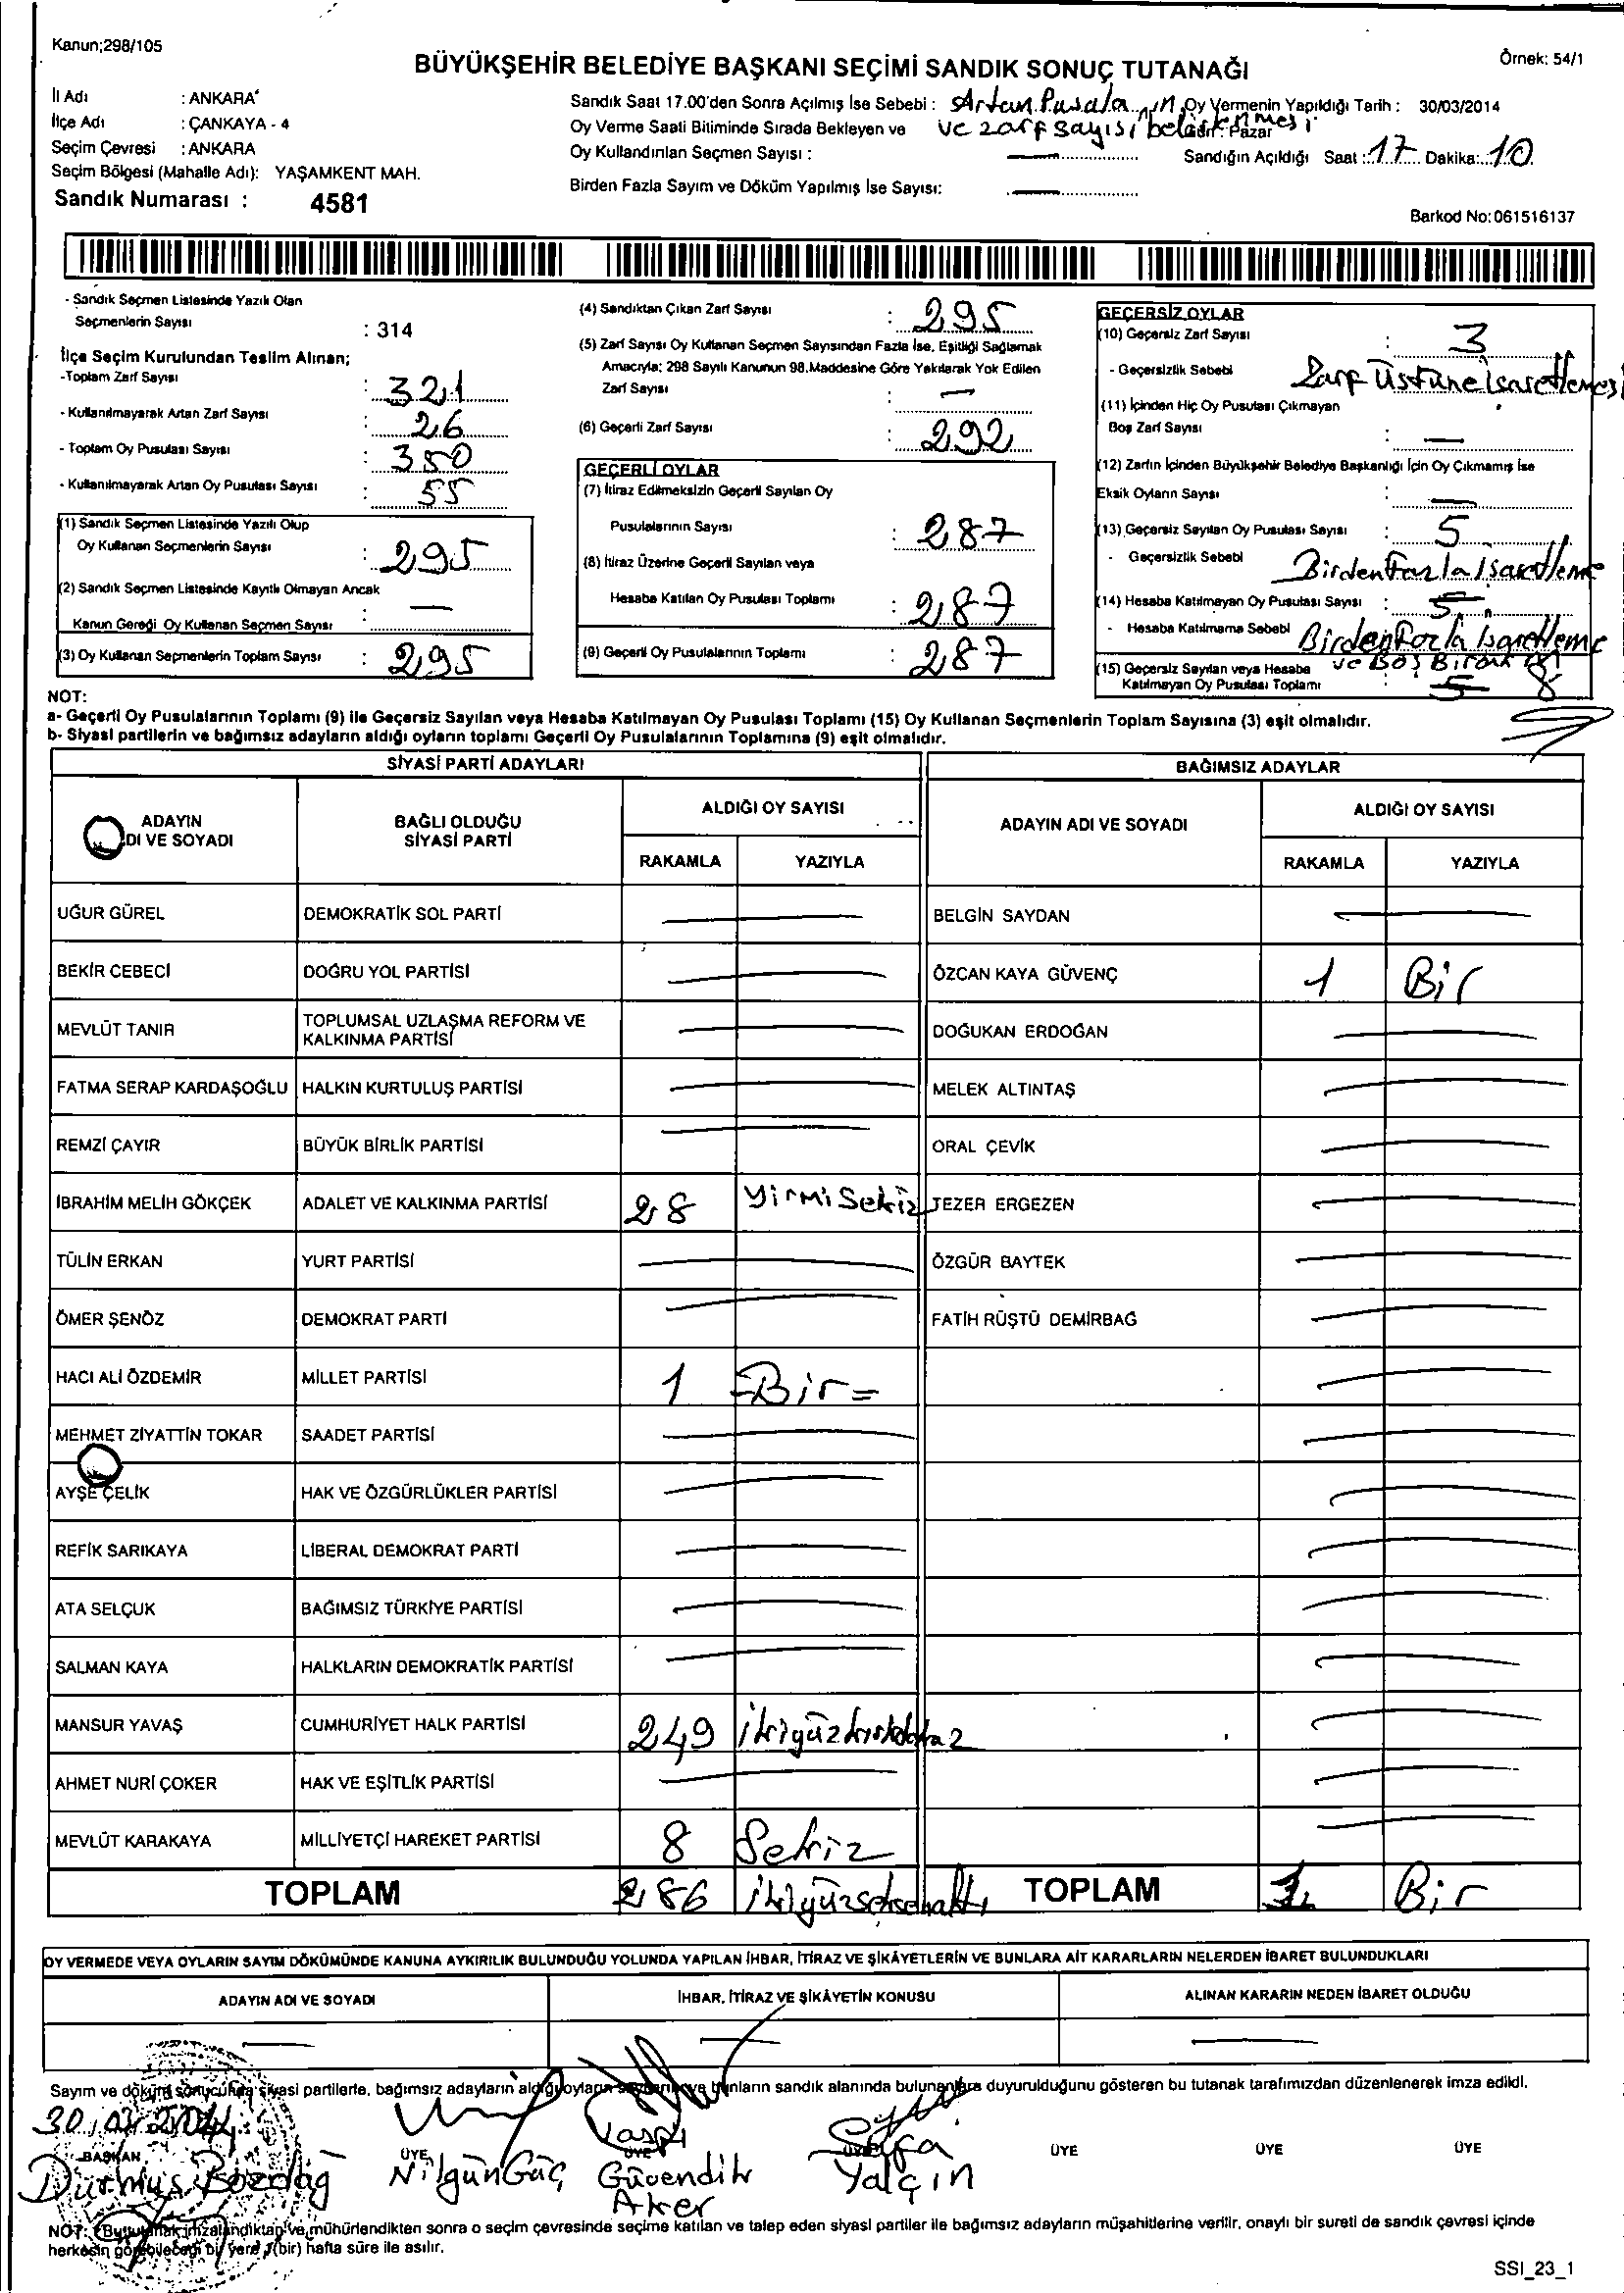 Kanun;298/105
BÜYÜKŞEHİR BELEDİYE BAŞKANI SEÇİMİ SANDIK SONUÇ TUTANAĞI
Örnek: 54/1
İl Adı : ANKARA
İlçe Adı : ÇANKAYA - 4
Seçim Çevresi : ANKARA
Seçim Bölgesi (Mahalle Adı): YAŞAMKENT MAH.
Sandık Numarası : 4581
Sandık Saat 17.00'den Sonra Açılmış İse Sebebi : Artan Pusala nın
ve zarf sayısı belirlenmesi
Oy Verme Saati Bitiminde Sırada Bekleyen ve
Oy Kullandırılan Seçmen Sayısı : —
Birden Fazla Sayım ve Döküm Yapılmış İse Sayısı: —
Oy Vermenin Yapıldığı Tarih : 30/03/2014
Pazar
Sandığın Açıldığı Saat : 17 Dakika: 10
Barkod No: 061516137
- Sandık Seçmen Listesinde Yazılı Olan
Seçmenlerin Sayısı : 314
İlçe Seçim Kurulundan Teslim Alınan;
-Toplam Zarf Sayısı : 321
- Kullanılmayarak Artan Zarf Sayısı : 26
- Toplam Oy Pusulası Sayısı : 350
- Kullanılmayarak Artan Oy Pusulası Sayısı : 55
(1) Sandık Seçmen Listesinde Yazılı Olup
Oy Kullanan Seçmenlerin Sayısı : 295
(2) Sandık Seçmen Listesinde Kayıtlı Olmayan Ancak
Kanun Gereği Oy Kullanan Seçmen Sayısı : —
(3) Oy Kullanan Seçmenlerin Toplam Sayısı : 295
(4) Sandıktan Çıkan Zarf Sayısı : 295
(5) Zarf Sayısı Oy Kullanan Seçmen Sayısından Fazla İse, Eşitliği Sağlamak
Amacıyla; 298 Sayılı Kanunun 98.Maddesine Göre Yakılarak Yok Edilen
Zarf Sayısı : —
(6) Geçerli Zarf Sayısı : 292
GEÇERLİ OYLAR
(7) İtiraz Edilmeksizin Geçerli Sayılan Oy
Pusulalarının Sayısı : 287
(8) İtiraz Üzerine Geçerli Sayılan veya
Hesaba Katılan Oy Pusulası Toplamı : 287
(9) Geçerli Oy Pusulalarının Toplamı : 287
GEÇERSİZ OYLAR
(10) Geçersiz Zarf Sayısı : 3
- Geçersizlik Sebebi Zarf Üstüne İsaretlemesi
(11) İçinden Hiç Oy Pusulası Çıkmayan
Boş Zarf Sayısı : —
(12) Zarfın İçinden Büyükşehir Belediye Başkanlığı İçin Oy Çıkmamış İse
Eksik Oyların Sayısı : —
(13) Geçersiz Sayılan Oy Pusulası Sayısı : 5
- Geçersizlik Sebebi Birden Fazla İsaretleme
(14) Hesaba Katılmayan Oy Pusulası Sayısı : 5
- Hesaba Katılmama Sebebi Birden Fazla İsaretleme
ve Boş
(15) Geçersiz Sayılan veya Hesaba
Katılmayan Oy Pusulası Toplamı : 5 8
NOT:
a- Geçerli Oy Pusulalarının Toplamı (9) ile Geçersiz Sayılan veya Hesaba Katılmayan Oy Pusulası Toplamı (15) Oy Kullanan Seçmenlerin Toplam Sayısına (3) eşit olmalıdır.
b- Siyasi partilerin ve bağımsız adayların aldığı oyların toplamı Geçerli Oy Pusulalarının Toplamına (9) eşit olmalıdır.
SİYASİ PARTİ ADAYLARI BAĞIMSIZ ADAYLAR
ADAYIN DI VE SOYADI BAĞLI OLDUĞU SİYASİ PARTİ ALDIĞI OY SAYISI ADAYIN ADI VE SOYADI ALDIĞI OY SAYISI
RAKAMLA YAZIYLA RAKAMLA YAZIYLA
UĞUR GÜREL DEMOKRATİK SOL PARTİ — BELGİN SAYDAN —
BEKİR CEBECİ DOĞRU YOL PARTİSİ — ÖZCAN KAYA GÜVENÇ 1 Bir
MEVLÜT TANIR TOPLUMSAL UZLAŞMA REFORM VE KALKINMA PARTİSİ — DOĞUKAN ERDOĞAN —
FATMA SERAP KARDAŞOĞLU HALKIN KURTULUŞ PARTİSİ — MELEK ALTINTAŞ —
REMZİ ÇAYIR BÜYÜK BİRLİK PARTİSİ — ORAL ÇEVİK —
İBRAHİM MELİH GÖKÇEK ADALET VE KALKINMA PARTİSİ 28 YirmiSekiz TEZER ERGEZEN —
TÜLİN ERKAN YURT PARTİSİ — ÖZGÜR BAYTEK —
ÖMER ŞENÖZ DEMOKRAT PARTİ — FATİH RÜŞTÜ DEMİRBAĞ —
HACI ALİ ÖZDEMİR MİLLET PARTİSİ 1 -Bir= —
MEHMET ZİYATTİN TOKAR SAADET PARTİSİ — —
AYŞE ÇELİK HAK VE ÖZGÜRLÜKLER PARTİSİ — —
REFİK SARIKAYA LİBERAL DEMOKRAT PARTİ — —
ATA SELÇUK BAĞIMSIZ TÜRKİYE PARTİSİ — —
SALMAN KAYA HALKLARIN DEMOKRATİK PARTİSİ — —
MANSUR YAVAŞ CUMHURİYET HALK PARTİSİ 249 —
AHMET NURİ ÇOKER HAK VE EŞİTLİK PARTİSİ — —
MEVLÜT KARAKAYA MİLLİYETÇİ HAREKET PARTİSİ 8 Sekiz —
TOPLAM 286 ikiyüzseksenaltı TOPLAM 1 Bir
OY VERMEDE VEYA OYLARIN SAYIM DÖKÜMÜNDE KANUNA AYKIRILIK BULUNDUĞU YOLUNDA YAPILAN İHBAR, İTİRAZ VE ŞİKÂYETLERİN VE BUNLARA AİT KARARLARIN NELERDEN İBARET BULUNDUKLARI
ADAYIN ADI VE SOYADI İHBAR, İTİRAZ VE ŞİKÂYETİN KONUSU ALINAN KARARIN NEDEN İBARET OLDUĞU
— — —
Sayım ve döküm sonucunda siyasi partilerle, bağımsız adayların aldığı oyların ve bunların sandık alanında bulunanlara duyurulduğunu gösteren bu tutanak tarafımızdan düzenlenerek imza edildi.
30.03.2014
BAŞKAN ÜYE ÜYE ÜYE ÜYE ÜYE ÜYE
Durmuş Bozdağ Nilgün Güç Yaspı Güvendik Aker Safa Yalçın
NOT: Bu tutanak imzalandıktan ve mühürlendikten sonra o seçim çevresinde seçime katılan ve talep eden siyasi partiler ile bağımsız adayların müşahitlerine verilir, onaylı bir sureti de sandık çevresi içinde
herkesin görebileceği bir yere 1(bir) hafta süre ile asılır.
SSI_23_1